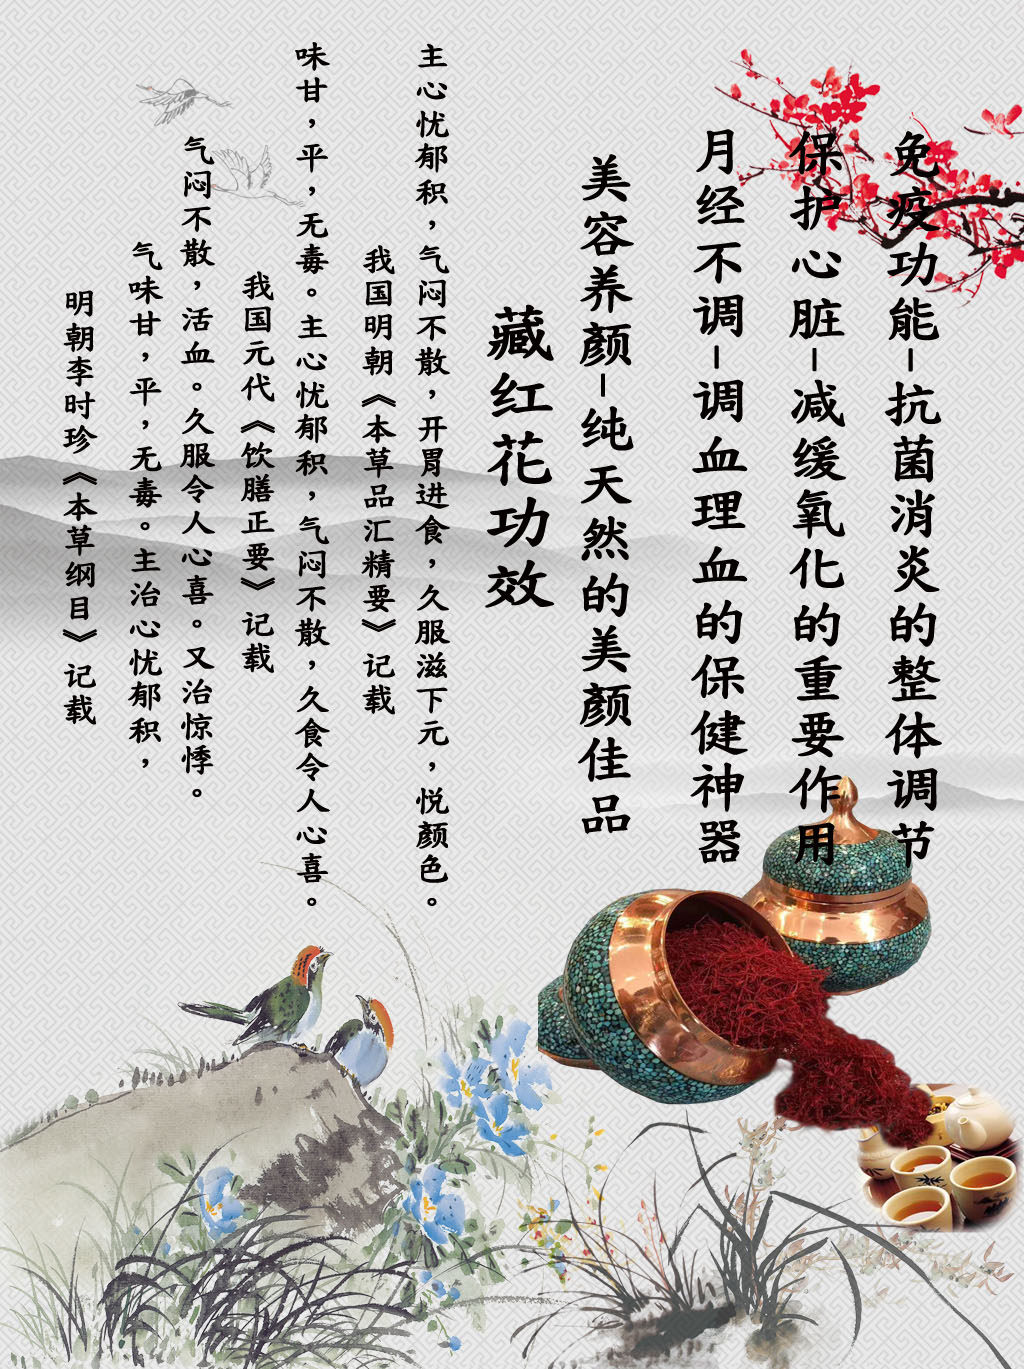 免疫功能-抗菌消炎的整体调节
保护心脏-减缓氧化的重要作用
月经不调-调血理血的保健神器
美容养颜-纯天然的美颜佳品
藏红花功效
主心忧郁积，气闷不散，开胃进食，久服滋下元，悦颜色。
我国明朝《本草品汇精要》记载
味甘，平，无毒。主心忧郁积，气闷不散，久食令人心喜。
我国元代《饮膳正要》记载
气闷不散，活血。久服令人心喜。又治惊悸。
气味甘，平，无毒。主治心忧郁积，
明朝李时珍《本草纲目》记载